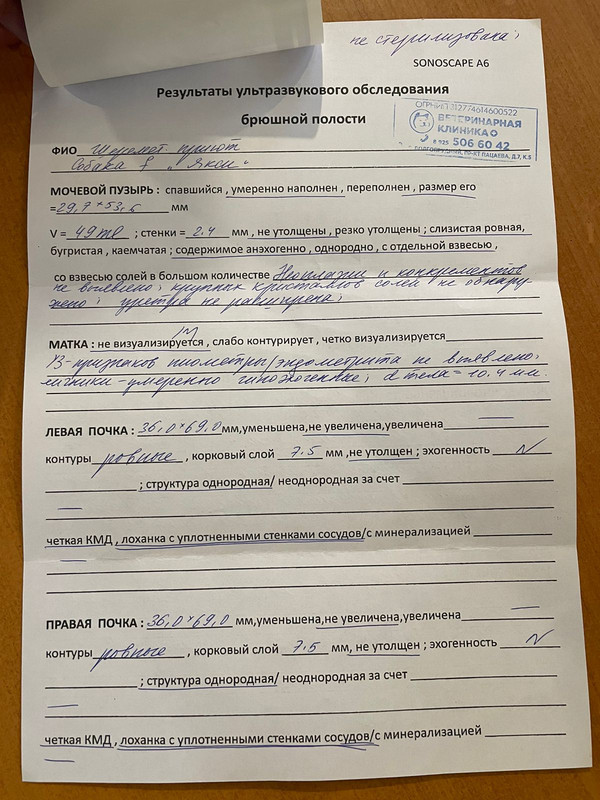 не стерилизована;
SONOSCAPE A6
Результаты ультразвукового обследования
брюшной полости
ОГРНИП 312774614600522
ВЕТЕРИНАРНАЯ
КЛИНИКА
8 925 506 60 42
ДОЛГОПРУДНЫЙ, ПР-КТ ПАЦАЕВА, Д.7, К.5
ФИО приют
Собака ♀ "Якси"
МОЧЕВОЙ ПУЗЫРЬ : спавшийся , умеренно наполнен , переполнен , размер его
=29,7*53,5 мм
V = 49 ml ; стенки = 2.4 мм , не утолщены , резко утолщены ; слизистая ровная,
бугристая , каемчатая ; содержимое анэхогенно , однородно , с отдельной взвесью ,
со взвесью солей в большом количестве Неоплазии и конкрементов
не выявлено; крупных кристаллов солей не обнару
жено; уретра не расширена;
МАТКА : не визуализируется , слабо контурирует , четко визуализируется
УЗ-признаков пиометры/эндометрита не выявлено;
яичники - умеренно гипоэхогенные; d тела = 10.4 мм.
ЛЕВАЯ ПОЧКА : 36,0*69,0 мм,уменьшена,не увеличена,увеличена —
контуры ровные , корковый слой 7.5 мм ,не утолщен ; эхогенность N
; структура однородная/ неоднородная за счет
—
четкая КМД , лоханка с уплотненными стенками сосудов/с минерализацией
—
ПРАВАЯ ПОЧКА : 36,0*69,0 мм,уменьшена,не увеличена,увеличена —
контуры ровные , корковый слой 7.5 мм, не утолщен ; эхогенность N
; структура однородная/ неоднородная за счет
—
четкая КМД , лоханка с уплотненными стенками сосудов/с минерализацией
—